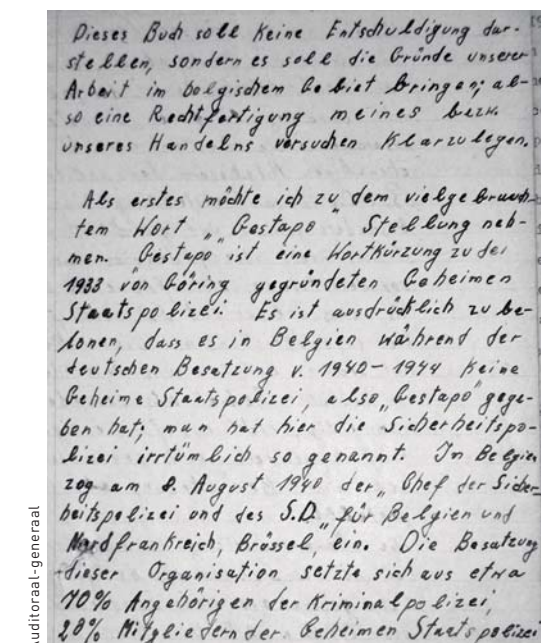 Dieses Buch soll keine Entschuldigung dar-
stellen, sondern es soll die Gründe unserer
Arbeit im belgischem Gebiet bringen; al-
so eine Rechtfertigung meines bezw.
unseres Handelns versuchen klarzulegen.
Als erstes möchte ich zu dem vielgebrauch-
tem Wort „Gestapo" Stellung neh-
men. Gestapo ist eine Wortkürzung zu der
1933 von Göring gegründeten Geheimen
Staatspolizei. Es ist ausdrücklich zu be-
tonen, dass es in Belgien während der
deutschen Besatzung v. 1940 - 1944 keine
Geheime Staatspolizei, also „Gestapo" gege-
ben hat; man hat hier die Sicherheitspo-
lizei irrtümlich so genannt. In Belgien
zog am 8. August 1940 der „Chef der Sicher-
heitspolizei und des S.D." für Belgien und
Nordfrankreich, Brüssel, ein. Die Besatzung
dieser Organisation setzte sich aus etwa
70% Angehörigen der Kriminalpolizei,
20% Mitgliedern der Geheimen Staatspolizei
Auditoraal-generaal